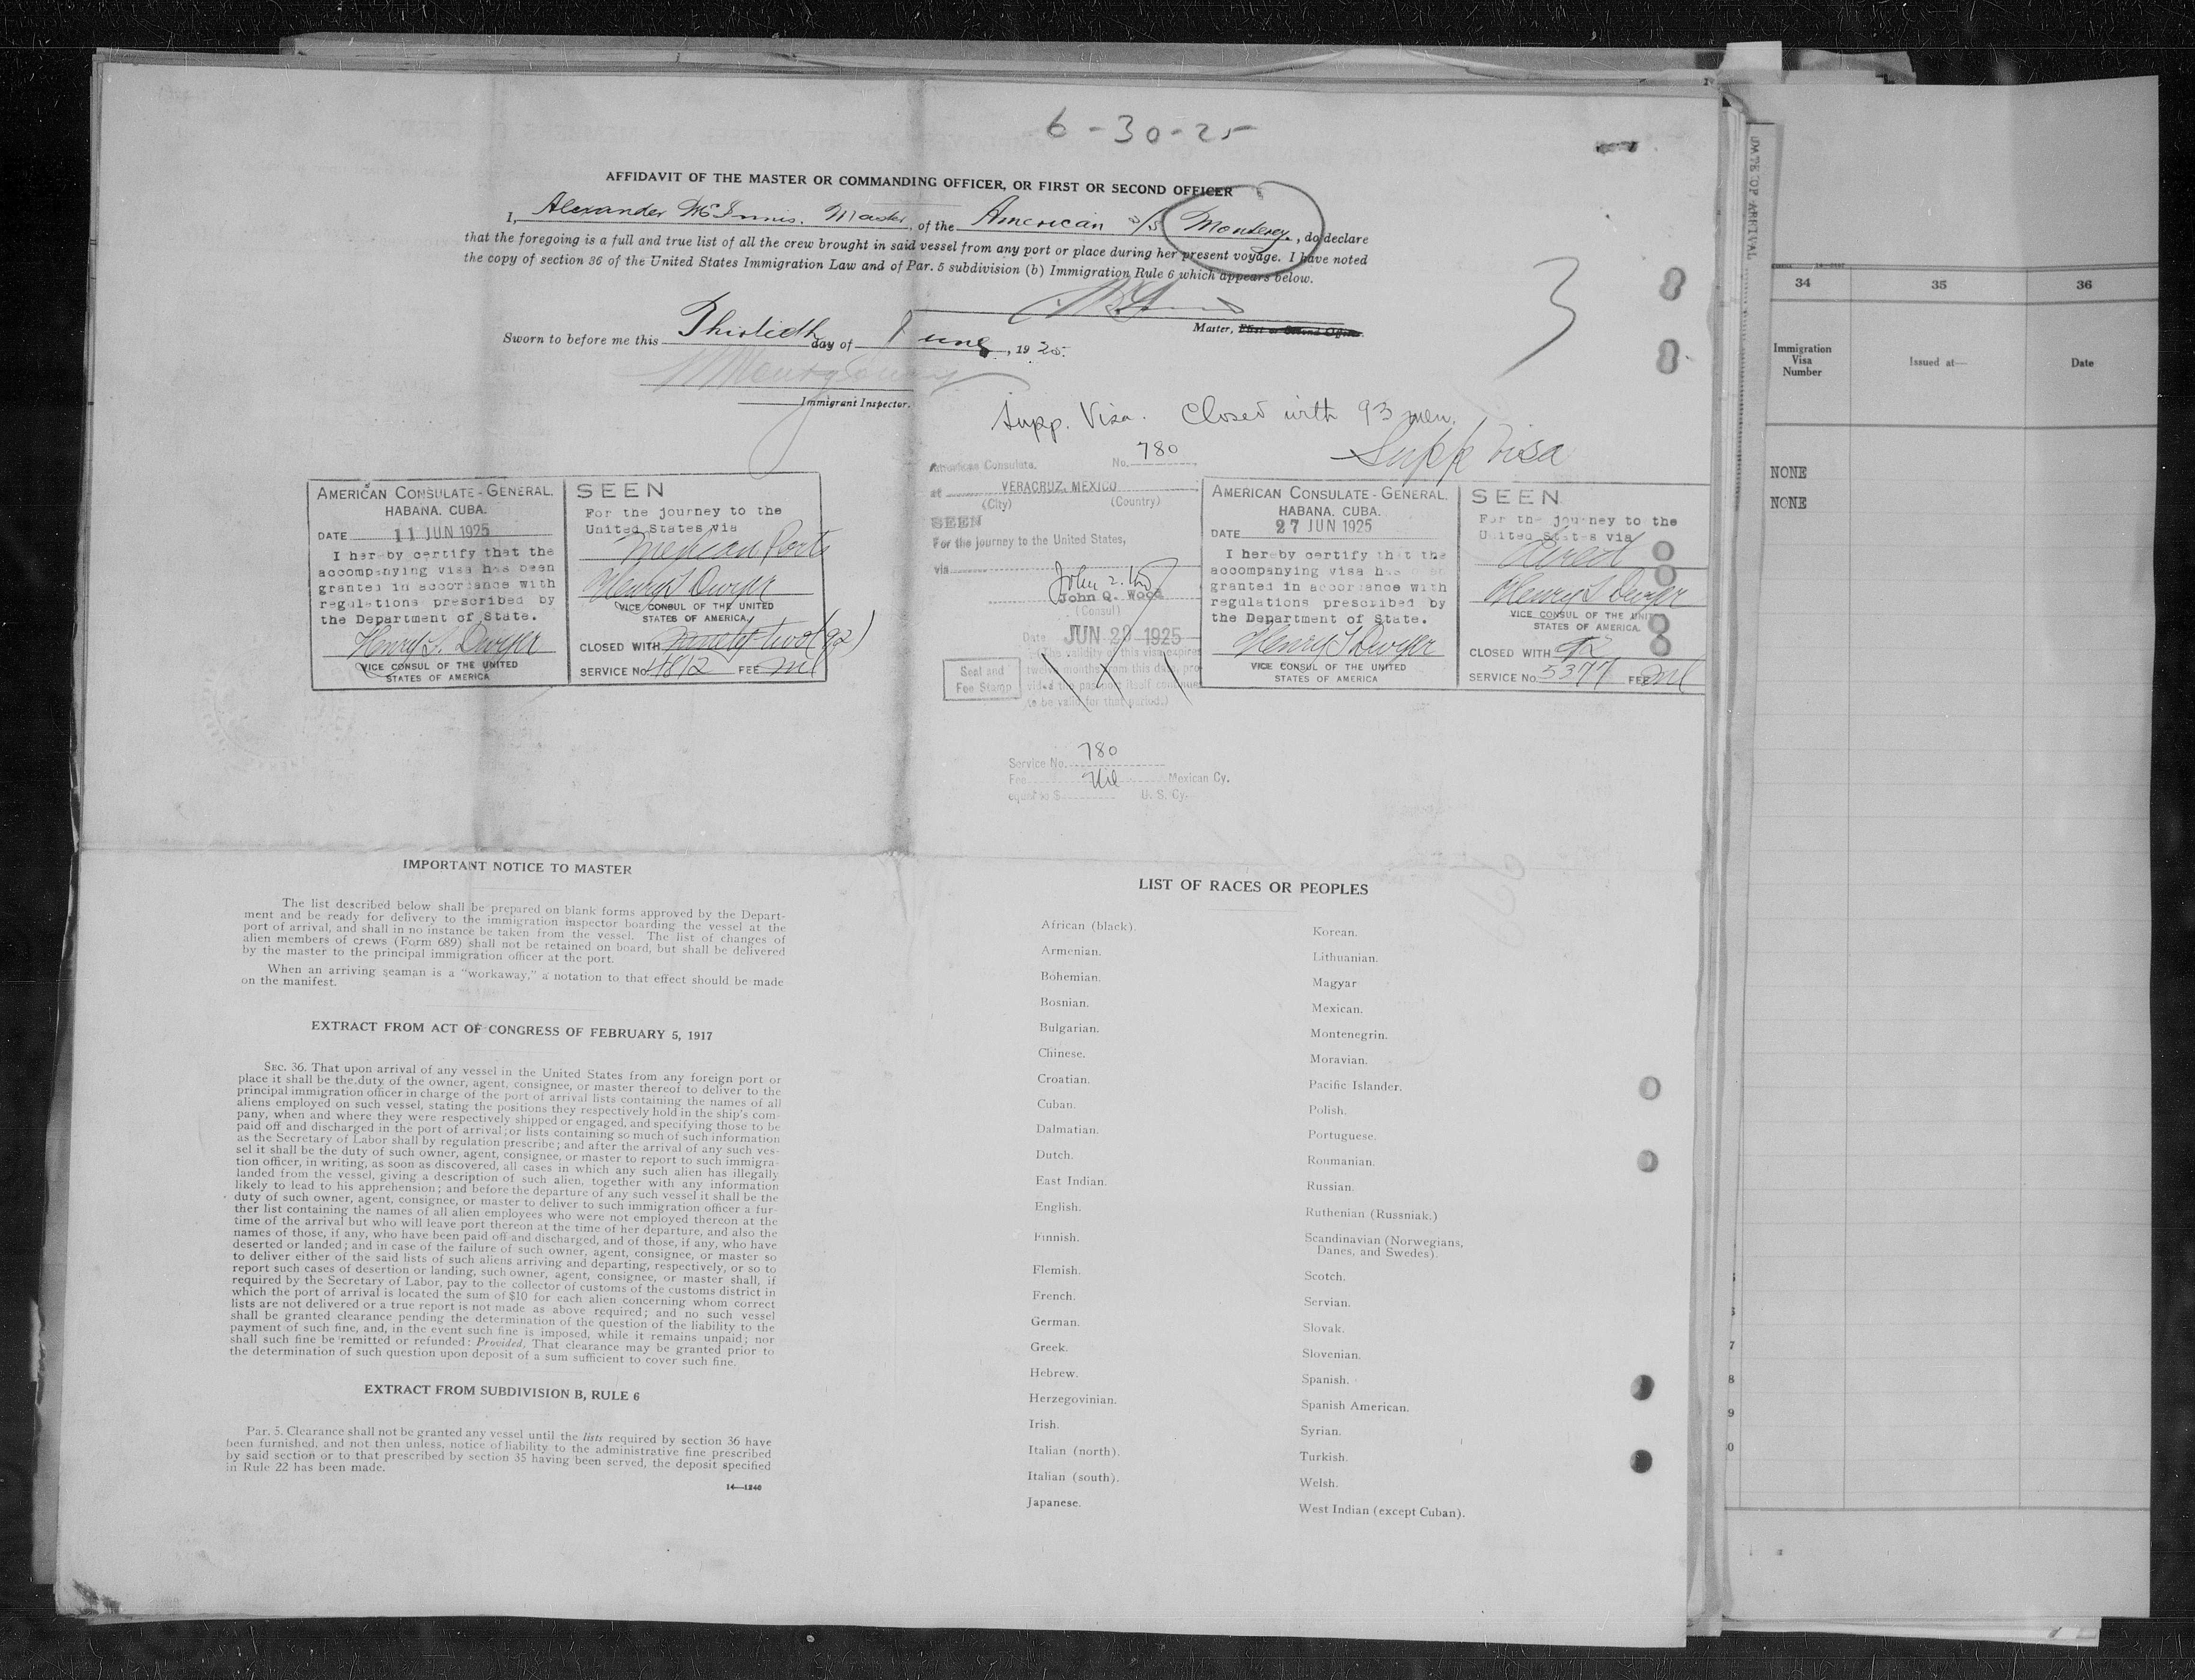 6-30-25
AFFIDAVIT OF THE MASTER OR COMMANDING OFFICER, OR FIRST OR SECOND OFFICER
I, Alexander McInnis. Master, of the American S/S Monterey, do declare
that the foregoing is a full and true list of all the crew brought in said vessel from any port or place during her present voyage. I have noted
the copy of section 36 of the United States Immigration Law and of Par. 5 subdivision (b) Immigration Rule 6 which appears below.
Master, First or Second Officer.
Sworn to before me this Thirtieth day of June, 1925.
Immigrant Inspector.
3
Supp. Visa. Closed with 93 men.
Supp Visa
AMERICAN CONSULATE-GENERAL.
HABANA. CUBA.
DATE 11 JUN 1925
I hereby certify that the
accompanying visa has been
granted in accordance with
regulations prescribed by
the Department of State.
Henry S. Dwyer
VICE CONSUL OF THE UNITED
STATES OF AMERICA
SEEN
For the journey to the
United States via
Mexican Ports
Henry S Dwyer
VICE CONSUL OF THE UNITED
STATES OF AMERICA
CLOSED WITH ninety-two (92)
SERVICE No. 4812 FEE nil
American Consulate, No. 780
at VERACRUZ, MEXICO
(City) (Country)
SEEN
For the journey to the United States,
via
John Q. Wood
John Q. Wood
(Consul)
Date JUN 23 1925
(The validity of this visa expires
twelve months from this date, pro-
vided the passport itself continues
to be valid for that period.)
Seal and
Fee Stamp
Service No. 780
Fee Nil Mexican Cy.
equal to $ U. S. Cy.
AMERICAN CONSULATE-GENERAL.
HABANA. CUBA.
DATE 27 JUN 1925
I hereby certify that the
accompanying visa has been
granted in accordance with
regulations prescribed by
the Department of State.
Henry S Dwyer
VICE CONSUL OF THE UNITED
STATES OF AMERICA
SEEN
For the journey to the
United States via
Direct
Henry S Dwyer
VICE CONSUL OF THE UNITED
STATES OF AMERICA.
CLOSED WITH 92
SERVICE No. 5377 FEE nil
IMPORTANT NOTICE TO MASTER
The list described below shall be prepared on blank forms approved by the Depart-
ment and be ready for delivery to the immigration inspector boarding the vessel at the
port of arrival, and shall in no instance be taken from the vessel. The list of changes of
alien members of crews (Form 689) shall not be retained on board, but shall be delivered
by the master to the principal immigration officer at the port.
When an arriving seaman is a "workaway," a notation to that effect should be made
on the manifest.
EXTRACT FROM ACT OF CONGRESS OF FEBRUARY 5, 1917
SEC. 36. That upon arrival of any vessel in the United States from any foreign port or
place it shall be the duty of the owner, agent, consignee, or master thereof to deliver to the
principal immigration officer in charge of the port of arrival lists containing the names of all
aliens employed on such vessel, stating the positions they respectively hold in the ship's com-
pany, when and where they were respectively shipped or engaged, and specifying those to be
paid off and discharged in the port of arrival; or lists containing so much of such information
as the Secretary of Labor shall by regulation prescribe; and after the arrival of any such ves-
sel it shall be the duty of such owner, agent, consignee, or master to report to such immigra-
tion officer, in writing, as soon as discovered, all cases in which any such alien has illegally
landed from the vessel, giving a description of such alien, together with any information
likely to lead to his apprehension; and before the departure of any such vessel it shall be the
duty of such owner, agent, consignee, or master to deliver to such immigration officer a fur-
ther list containing the names of all alien employees who were not employed thereon at the
time of the arrival but who will leave port thereon at the time of her departure, and also the
names of those, if any, who have been paid off and discharged, and of those, if any, who have
deserted or landed; and in case of the failure of such owner, agent, consignee, or master so
to deliver either of the said lists of such aliens arriving and departing, respectively, or so to
report such cases of desertion or landing, such owner, agent, consignee, or master shall, if
required by the Secretary of Labor, pay to the collector of customs of the customs district in
which the port of arrival is located the sum of $10 for each alien concerning whom correct
lists are not delivered or a true report is not made as above required; and no such vessel
shall be granted clearance pending the determination of the question of the liability to the
payment of such fine, and, in the event such fine is imposed, while it remains unpaid; nor
shall such fine be remitted or refunded: Provided, That clearance may be granted prior to
the determination of such question upon deposit of a sum sufficient to cover such fine.
EXTRACT FROM SUBDIVISION B, RULE 6
Par. 5. Clearance shall not be granted any vessel until the lists required by section 36 have
been furnished, and not then unless, notice of liability to the administrative fine prescribed
by said section or to that prescribed by section 35 having been served, the deposit specified
in Rule 22 has been made.
14—1240
LIST OF RACES OR PEOPLES
African (black).
Armenian.
Bohemian.
Bosnian.
Bulgarian.
Chinese.
Croatian.
Cuban.
Dalmatian.
Dutch.
East Indian.
English.
Finnish.
Flemish.
French.
German.
Greek.
Hebrew.
Herzegovinian.
Irish.
Italian (north).
Italian (south).
Japanese.
Korean.
Lithuanian.
Magyar
Mexican.
Montenegrin.
Moravian.
Pacific Islander.
Polish.
Portuguese.
Roumanian.
Russian.
Ruthenian (Russniak.)
Scandinavian (Norwegians,
Danes, and Swedes).
Scotch.
Servian.
Slovak.
Slovenian.
Spanish.
Spanish American.
Syrian.
Turkish.
Welsh.
West Indian (except Cuban).
DATE OF ARRIVAL
34 35 36
Immigration
Visa
Number
Issued at—
Date
NONE
NONE
7
8
9